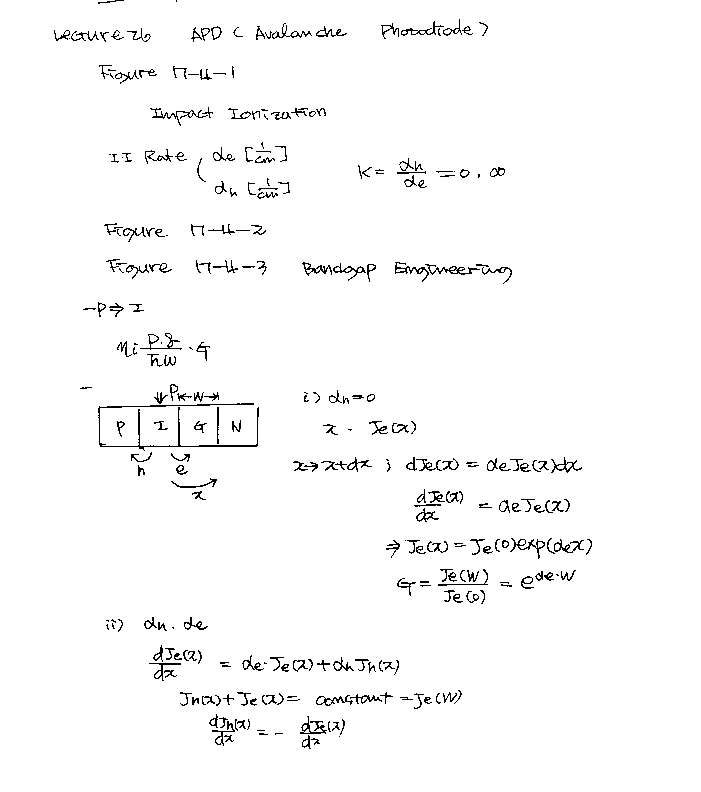 Lecture 26 APD ( Avalanche Photodiode )
Figure 17-4-1
Impact Ionization
II Rate ( αe [1/cm]
αh [1/cm]
K = αh/αe = 0, ∞
Figure 17-4-2
Figure 17-4-3 Bandgap Engineering
-P ⇒ I
ηi P·q/ħω · G
-
P ←W→
P I G N
h e
x
i) αh=0
x · Je(x)
x→x+dx ; dJe(x) = αeJe(x)dx
dJe(x)/dx = αeJe(x)
⇒ Je(x) = Je(0)exp(αex)
G = Je(W)/Je(0) = e^αe·W
ii) αh, αe
dJe(x)/dx = αe·Je(x)+αhJh(x)
Jh(x)+Je(x) = constant = Je(W)
dJh(x)/dx = - dJe(x)/dx